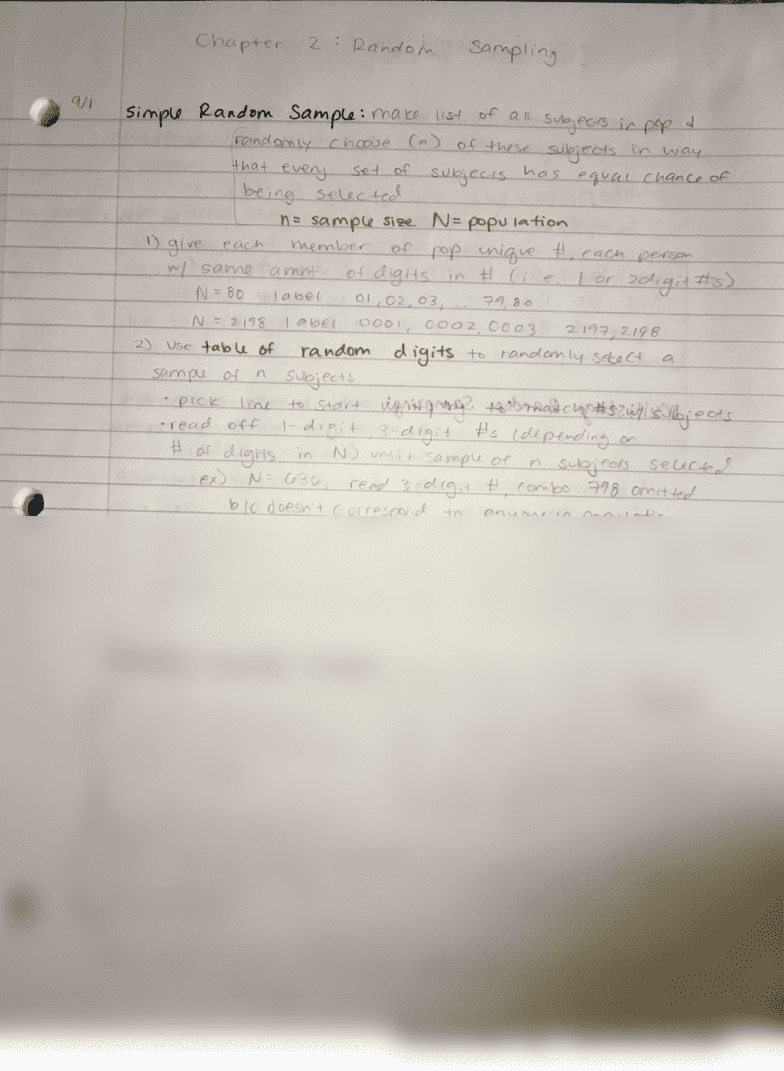 Chapter 2 : Random Sampling
9/1
Simple Random Sample: make list of all subjects in pop &
randomly choose (n) of these subjects in way
that every set of subjects has equal chance of
being selected
n= sample size N= population
1) give each member of pop unique #, each person
w/ same amnt. of digits in # (i.e. 1 or 2digit #s)
N = 80 label 01, 02, 03, .. 79, 80
N = 2198 label 0001, 0002, 0003. 2197, 2198
2) Use table of random digits to randomly select a
sample of n subjects
• pick line to start to match #s w/ subjects
• read off 1-digit, 3-digit #s (depending on
# of digits in N) until sample of n subjects selected
ex) N= 636, read 3-digit #, combo 798 omitted
b/c doesn't correspond to anyone in